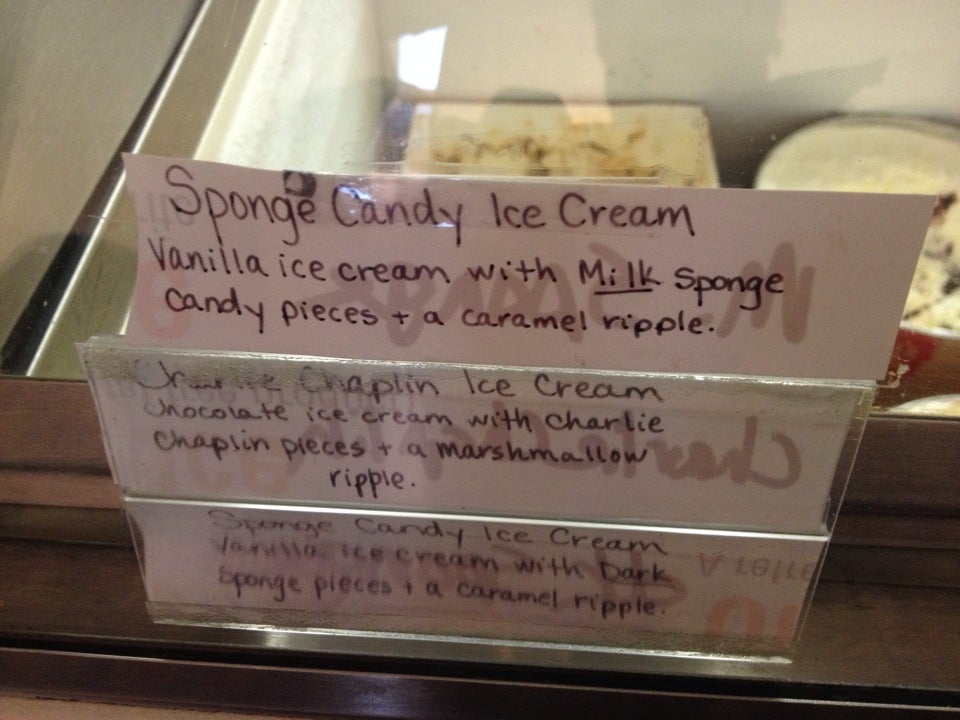 Sponge Candy Ice Cream
Vanilla ice cream with Milk Sponge
Candy pieces + a caramel ripple.
Charlie Chaplin Ice Cream
Chocolate ice cream with Charlie
Chaplin pieces + a marshmallow
ripple.
Sponge Candy Ice Cream
Vanilla ice cream with Dark
Sponge pieces + a caramel ripple.